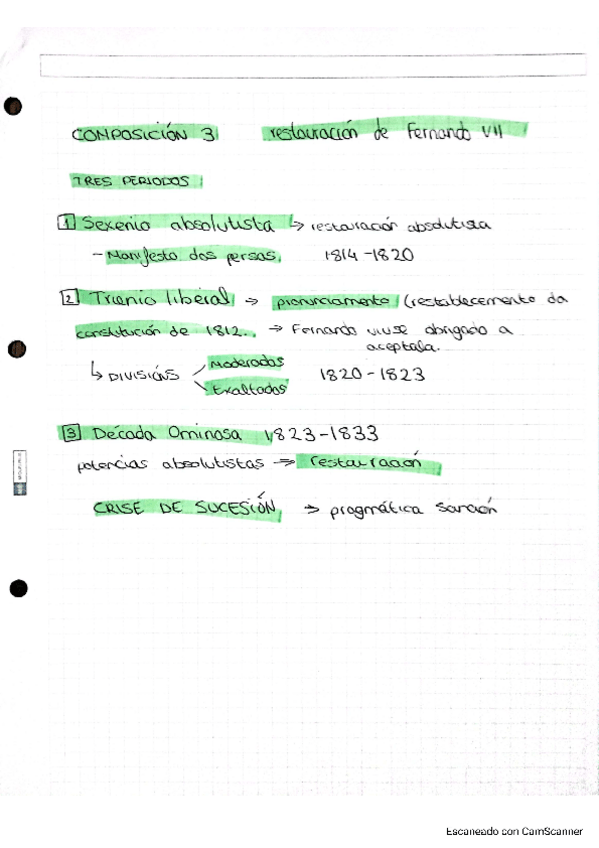 COMPOSICIÓN 3 restauración de Fernando VII
TRES PERIODOS
1 Sexenio absolutista → restauración absolutista
- Manifesto dos persas. 1814-1820
2 Trienio liberal → pronunciamento (restablecemento da
constitución de 1812. → Fernando viuse obrigado a
aceptala.
↳ DIVISIÓNS Moderados
Exaltados 1820-1823
3 Década Ominosa 1823-1833
potencias absolutistas → restauración
CRISE DE SUCESIÓN → pragmática sanción
Escaneado con CamScanner